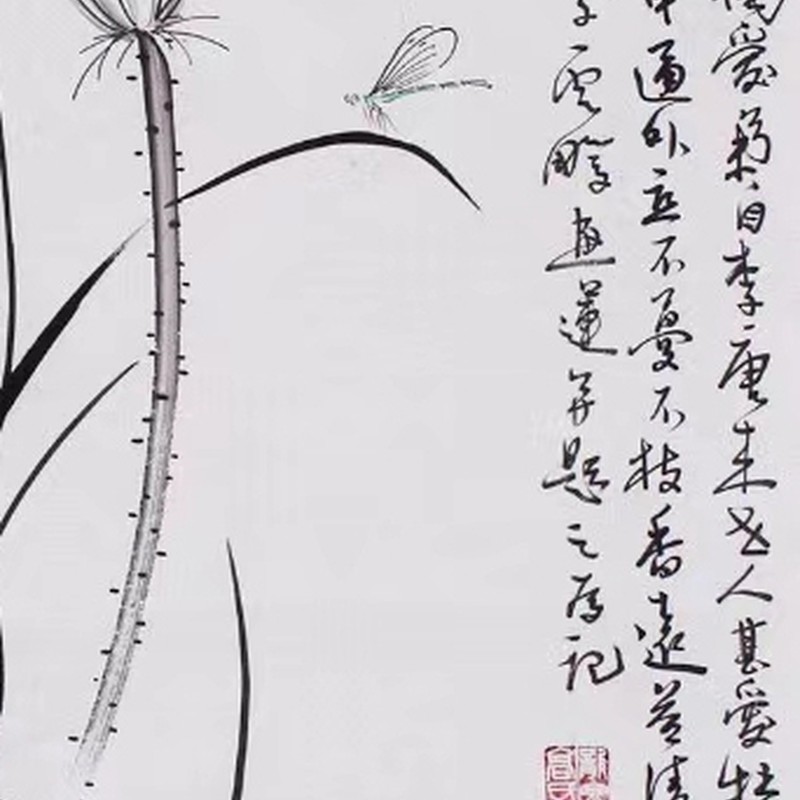 獨愛菊自李唐来世人甚愛牡
中通外直不蔓不枝香遠益清
子雲鵬畫蓮并題之為記